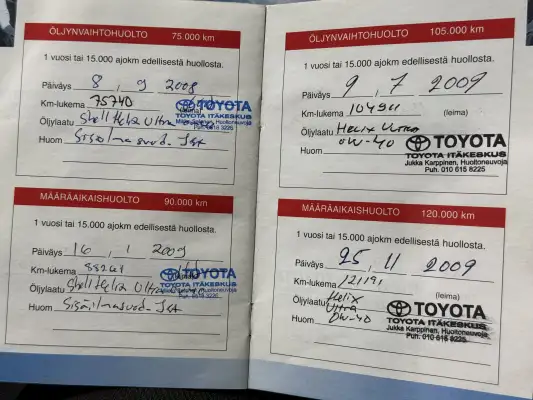 ÖLJYNVAIHTOHUOLTO 75.000 km
1 vuosi tai 15.000 ajokm edellisestä huollosta.
Päiväys 8 , 9 2008
Km-lukema 75740
TOYOTA
Öljylaatu Shell Helix Ultra
TOYOTA ITÄKESKUS
Huom Sisäilmasuod.
MÄÄRÄAIKAISHUOLTO 90.000 km
1 vuosi tai 15.000 ajokm edellisestä huollosta.
Päiväys 16 , 1 2009
Km-lukema
TOYOTA
Öljylaatu Shell Helix Ultra
TOYOTA ITÄKESKUS
Huom Sisäilmasuod.
ÖLJYNVAIHTOHUOLTO 105.000 km
1 vuosi tai 15.000 ajokm edellisestä huollosta.
Päiväys 9 , 7 2009
Km-lukema 104911
(leima)
Öljylaatu Helix Ultra
0W-40
Huom
TOYOTA
TOYOTA ITÄKESKUS
Jukka Karppinen, Huoltoneuvoja
Puh. 010 615 8225
MÄÄRÄAIKAISHUOLTO 120.000 km
1 vuosi tai 15.000 ajokm edellisestä huollosta.
Päiväys 25 , 11 2009
Km-lukema 121191
(leima)
Öljylaatu Helix
Ultra
0W-40
Huom
TOYOTA
TOYOTA ITÄKESKUS
Jukka Karppinen, Huoltoneuvoja
Puh. 010 615 8225